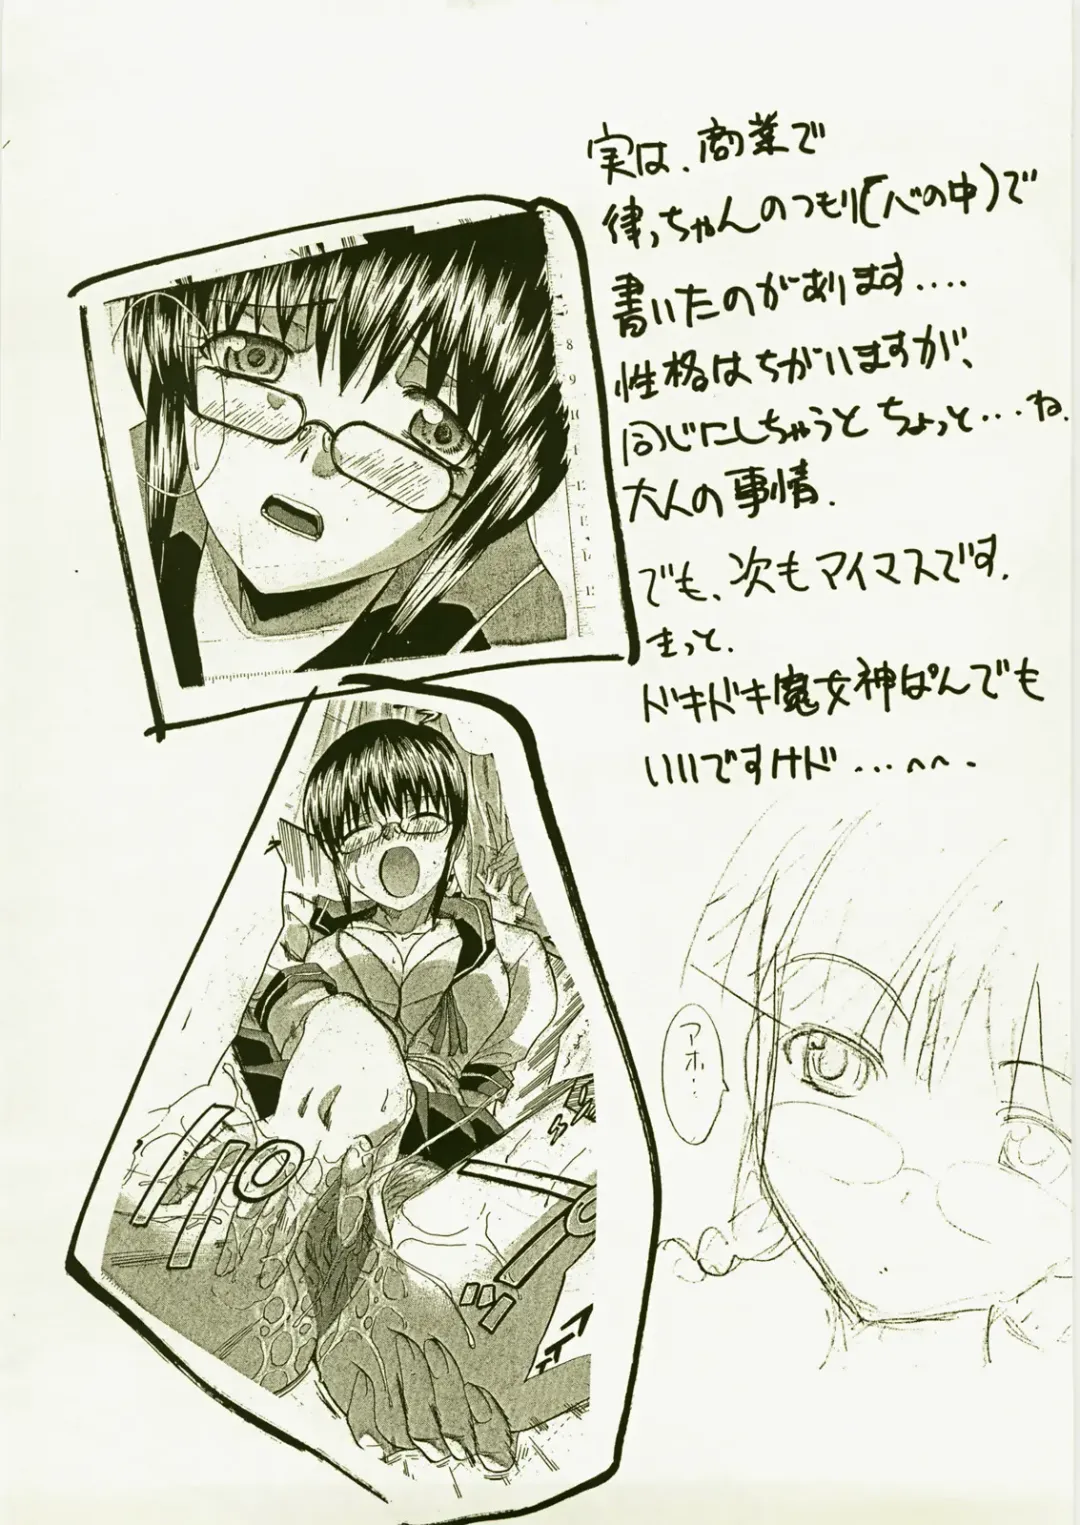 実は、商業で
律っちゃんのつもり(心の中)で
書いたのがあります....
性格はちがいますが、
同じにしちゃうと ちょっと...ね.
大人の事情.
でも、次もマイマスです.
きっと.
ドキドキ魔女神ぱんでも
いいですけド...へへ.
アホ...
8
9